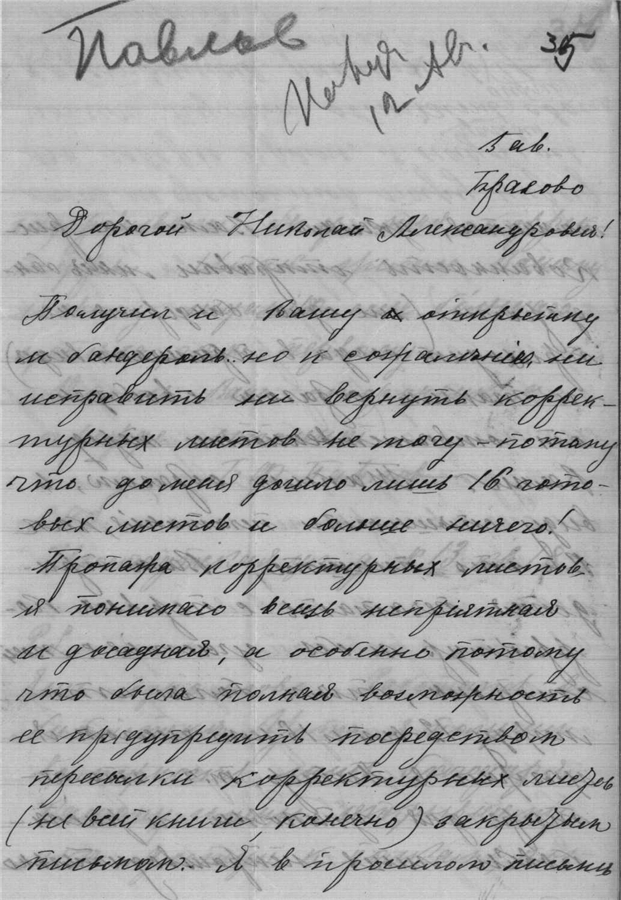 Павлов
35
12 Ав.
5 ав.
Брахово
Дорогой Николай Александрович!
Получил и Вашу открытку
и бандероль. но к сожалению, ни
исправить ни вернуть коррек-
турных листов не могу – потому
что до меня дошло лишь 16 гото-
вых листов и больше ничего!
Пропажа корректурных листов,
я понимаю вещь непріятная
и досадная, а особенно потому
что была полная возможность
ее предупредить посредством
пересылки корректурных листов
(не всей книги, конечно) закрытым
письмом. Я в прошлом письме